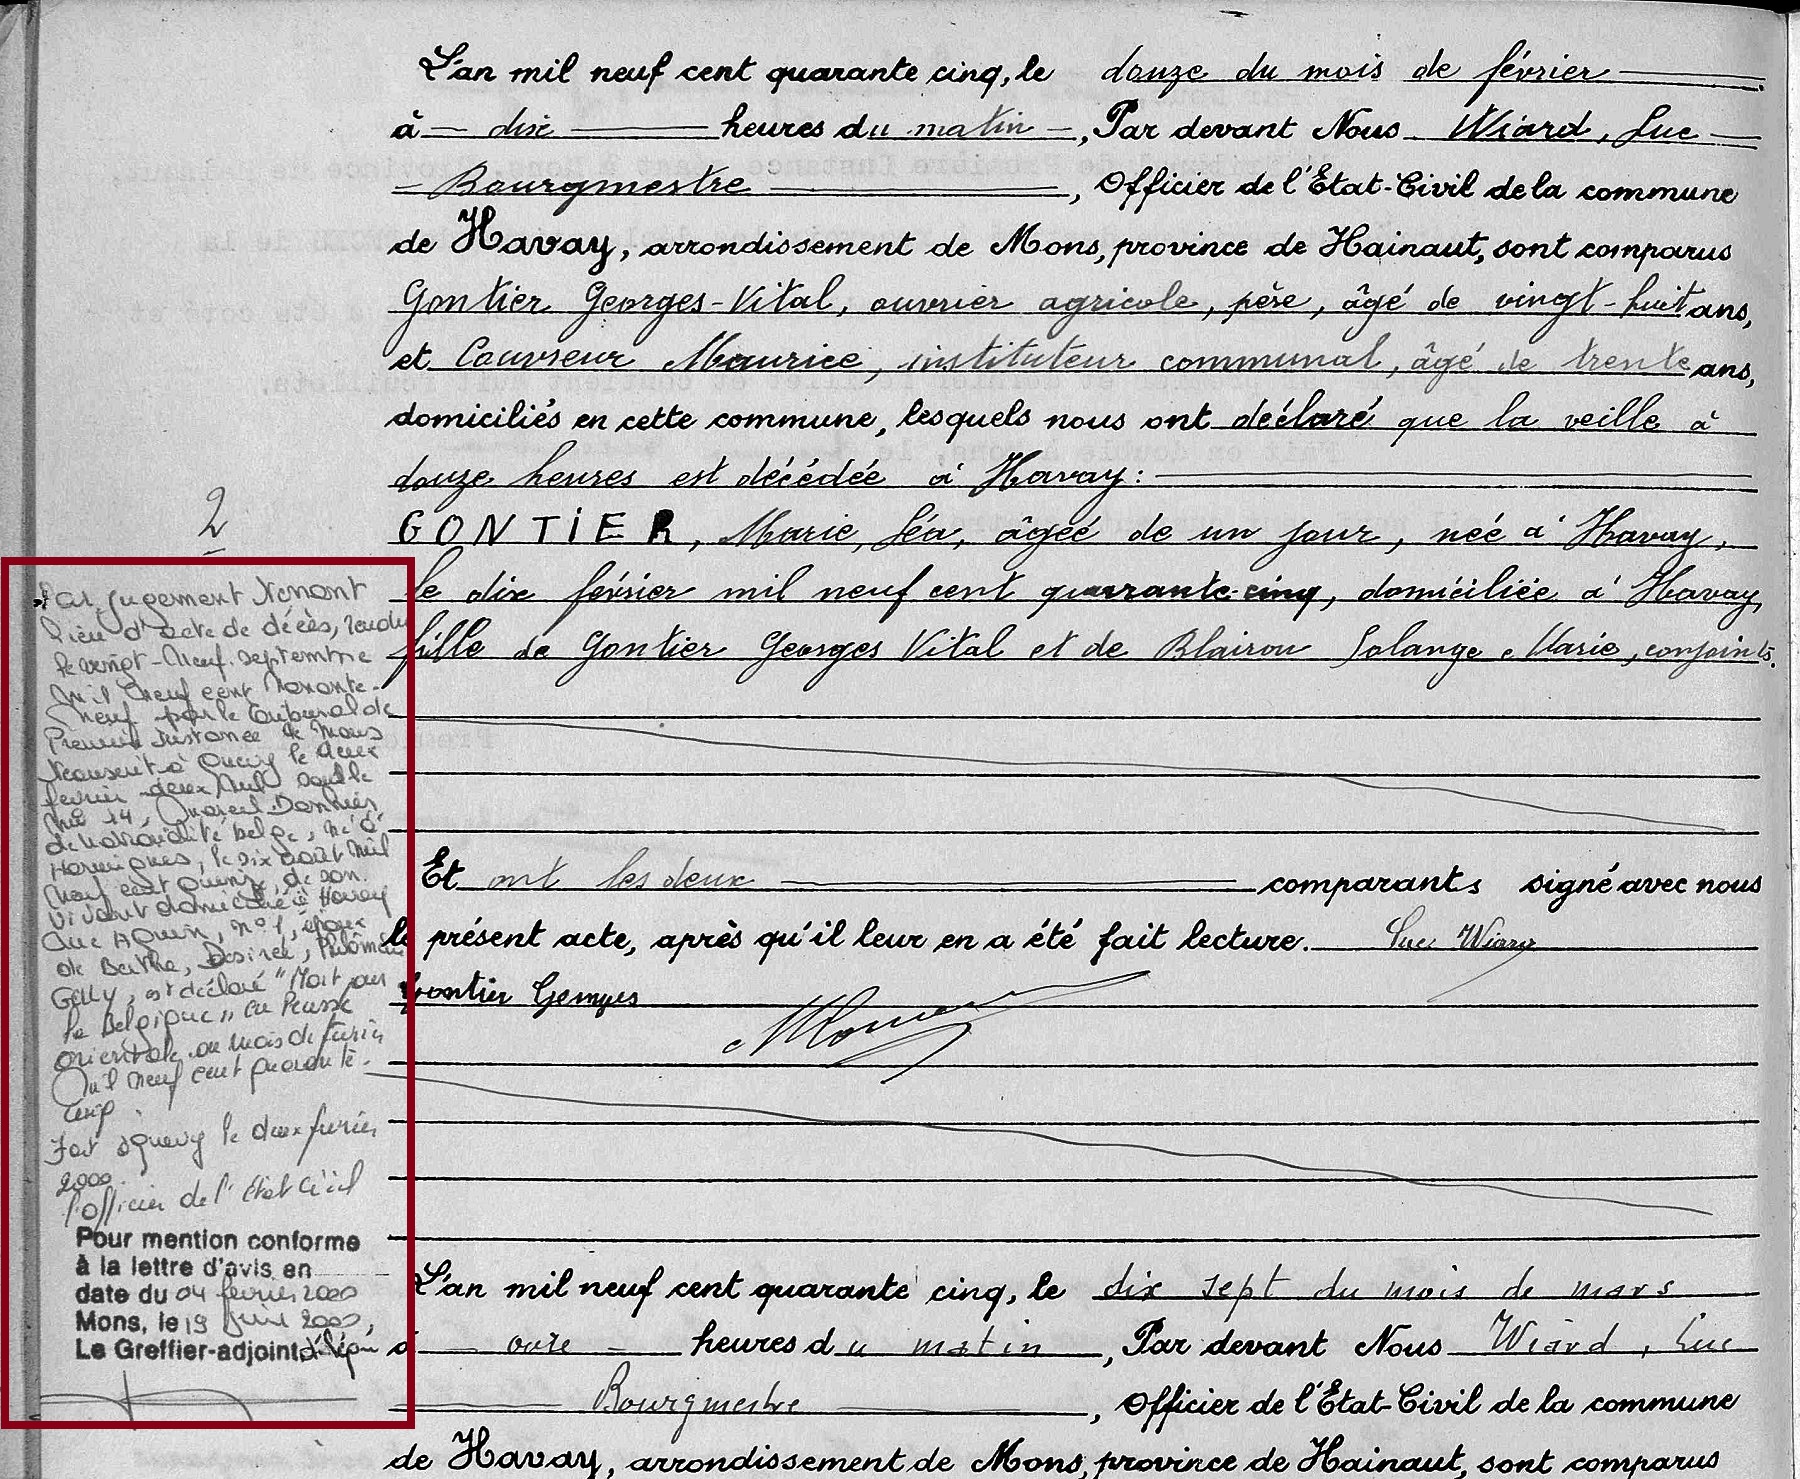 L'an mil neuf cent quarante cinq, le douze du mois de février
à dix heures du matin, Par devant Nous Wiard, Luc
Bourgmestre, Officier de l'Etat-Civil de la commune
de Havay, arrondissement de Mons, province de Hainaut, sont comparus
Gontier Georges-Vital, ouvrier agricole, père, âgé de vingt-huit ans,
et Couvreur Maurice, instituteur communal, âgé de trente ans,
domiciliés en cette commune, lesquels nous ont déclaré que la veille à
douze heures est décédée à Havay:
GONTIER, Marie, Léa, âgée de un jour, née à Havay,
le dix février mil neuf cent quarante-cinq, domiciliée à Havay,
fille de Gontier Georges Vital et de Blairon Solange Marie, conjoints.
Et ont les deux comparants signé avec nous
le présent acte, après qu'il leur en a été fait lecture. Luc Wiard
Gontier Georges
2
Par jugement tenant
lieu d'acte de décès, rendu
le vingt-neuf septembre
mil neuf cent nonante-
neuf par le Tribunal de
Première Instance de Mons
transcrit à Quévy le deux
février deux mil sous le
n° 14, Damien,
de nationalité belge, né à
Harmignies, le six août mil
neuf cent quinze, de son
vivant domicilié à Havay
n° 1, époux
de Berthe, Désirée, Philomène
Gelly, est déclaré "Mort pour
la Belgique" en Prusse
orientale au mois de février
mil neuf cent quarante-
cinq
Fait à Quévy le deux février
2000.
l'officier de l'Etat Civil
Pour mention conforme
à la lettre d'avis en
date du 04 février 2000
Mons, le 19 2000,
Le Greffier-adjoint délégué
L'an mil neuf cent quarante cinq, le dix sept du mois de mars
à onze heures du matin, Par devant Nous Wiard, Luc
Bourgmestre, Officier de l'Etat-Civil de la commune
de Havay, arrondissement de Mons, province de Hainaut, sont comparus